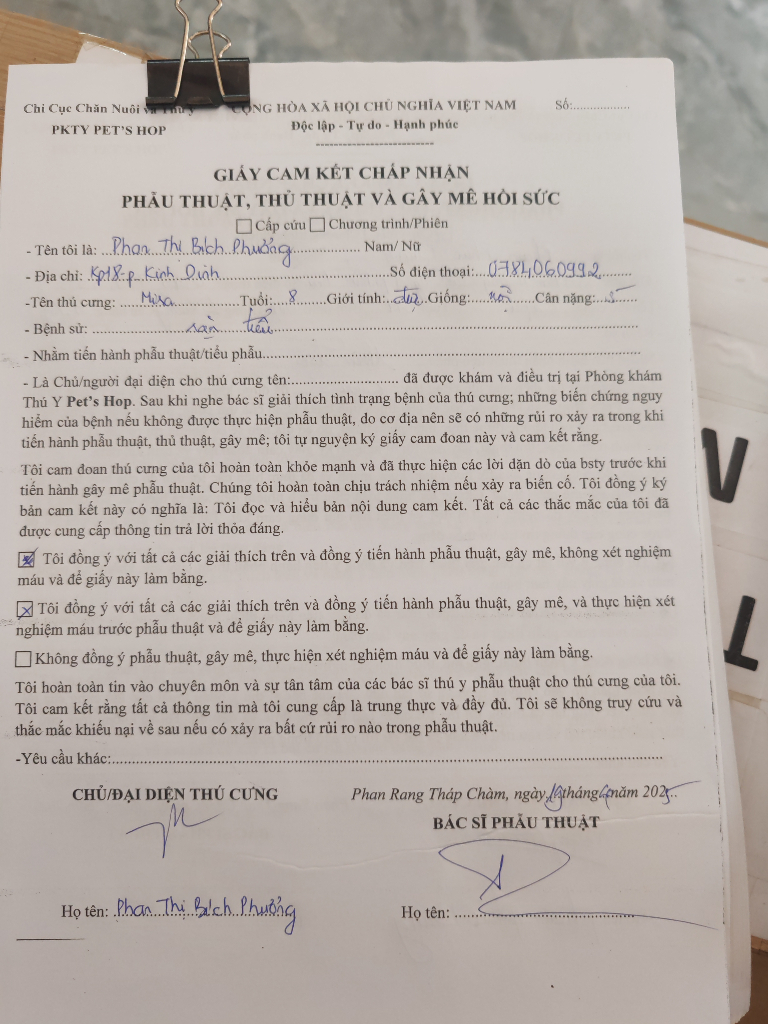 Chi Cục Chăn Nuôi và Thú y
CỘNG HÒA XÃ HỘI CHỦ NGHĨA VIỆT NAM
Số:.................
PKTY PET'S HOP
Độc lập - Tự do - Hạnh phúc
GIẤY CAM KẾT CHẤP NHẬN
PHẪU THUẬT, THỦ THUẬT VÀ GÂY MÊ HỒI SỨC
Cấp cứu Chương trình/Phiên
- Tên tôi là: Phan Thị Bích Phượng Nam/ Nữ
- Địa chỉ: Kp18-p. Kinh Dinh Số điện thoại: 0784060992
-Tên thú cưng: Misa Tuổi: 8 Giới tính: đực Giống: Cân nặng: 5
- Bệnh sử: sàn tiểu
- Nhằm tiến hành phẫu thuật/tiểu phẫu
- Là Chủ/người đại diện cho thú cưng tên: đã được khám và điều trị tại Phòng khám
Thú Y Pet's Hop. Sau khi nghe bác sĩ giải thích tình trạng bệnh của thú cưng; những biến chứng nguy
hiểm của bệnh nếu không được thực hiện phẫu thuật, do cơ địa nên sẽ có những rủi ro xảy ra trong khi
tiến hành phẫu thuật, thủ thuật, gây mê; tôi tự nguyện ký giấy cam đoan này và cam kết rằng.
Tôi cam đoan thú cưng của tôi hoàn toàn khỏe mạnh và đã thực hiện các lời dặn dò của bsty trước khi
tiến hành gây mê phẫu thuật. Chúng tôi hoàn toàn chịu trách nhiệm nếu xảy ra biến cố. Tôi đồng ý ký
bản cam kết này có nghĩa là: Tôi đọc và hiểu bản nội dung cam kết. Tất cả các thắc mắc của tôi đã
được cung cấp thông tin trả lời thỏa đáng.
Tôi đồng ý với tất cả các giải thích trên và đồng ý tiến hành phẫu thuật, gây mê, không xét nghiệm
máu và để giấy này làm bằng.
Tôi đồng ý với tất cả các giải thích trên và đồng ý tiến hành phẫu thuật, gây mê, và thực hiện xét
nghiệm máu trước phẫu thuật và để giấy này làm bằng.
Không đồng ý phẫu thuật, gây mê, thực hiện xét nghiệm máu và để giấy này làm bằng.
Tôi hoàn toàn tin vào chuyên môn và sự tân tâm của các bác sĩ thú y phẫu thuật cho thú cưng của tôi.
Tôi cam kết rằng tất cả thông tin mà tôi cung cấp là trung thực và đầy đủ. Tôi sẽ không truy cứu và
thắc mắc khiếu nại về sau nếu có xảy ra bất cứ rủi ro nào trong phẫu thuật.
-Yêu cầu khác:
CHỦ/ĐẠI DIỆN THÚ CƯNG
Phan Rang Tháp Chàm, ngày tháng năm 2025
BÁC SĨ PHẪU THUẬT
Họ tên: Phan Thị Bích Phượng
Họ tên: